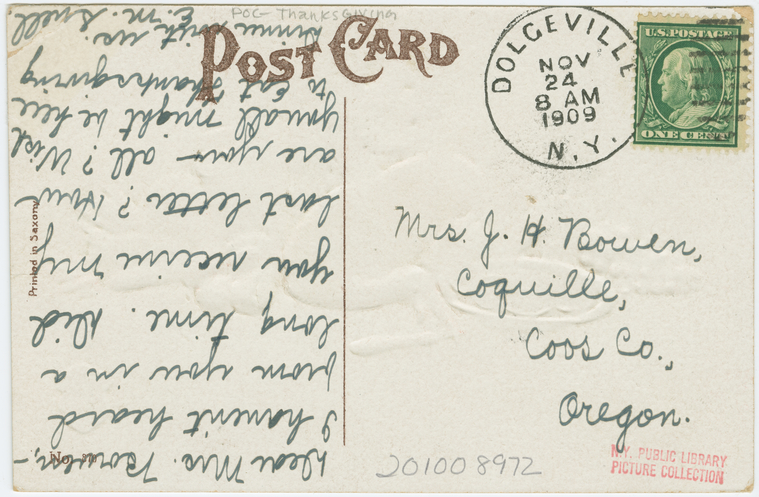 POC - Thanksgiving
POST CARD
DOLGEVILLE
NOV
24
8 AM
1909
N.Y.
U.S. POSTAGE
ONE CENT
Mrs. J. H. Bowen,
Coquille,
Coos Co.,
Oregon.
Dear Mrs. Bowen,-
I haven't heard
from you in a
long time. Did
you receive my
last letter? How
are you all? Wish
you all might be here
to eat Thanksgiving
dinner with us.
E. M. Snell
Printed in Saxony
No.
201008972
N.Y. PUBLIC LIBRARY
PICTURE COLLECTION